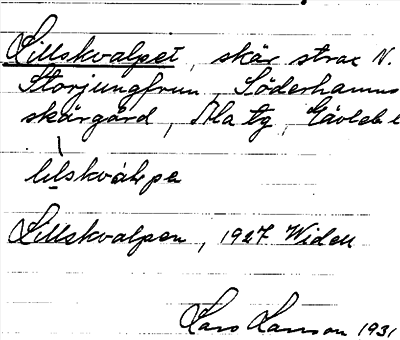 Lillskvalpet, skär strax N.
Storjungfrun, Söderhamns
skärgård, Ala tg, Gävleb l
lilskválpa
Lillskvalpen, 1927 Widell
Lars Larsson 1931